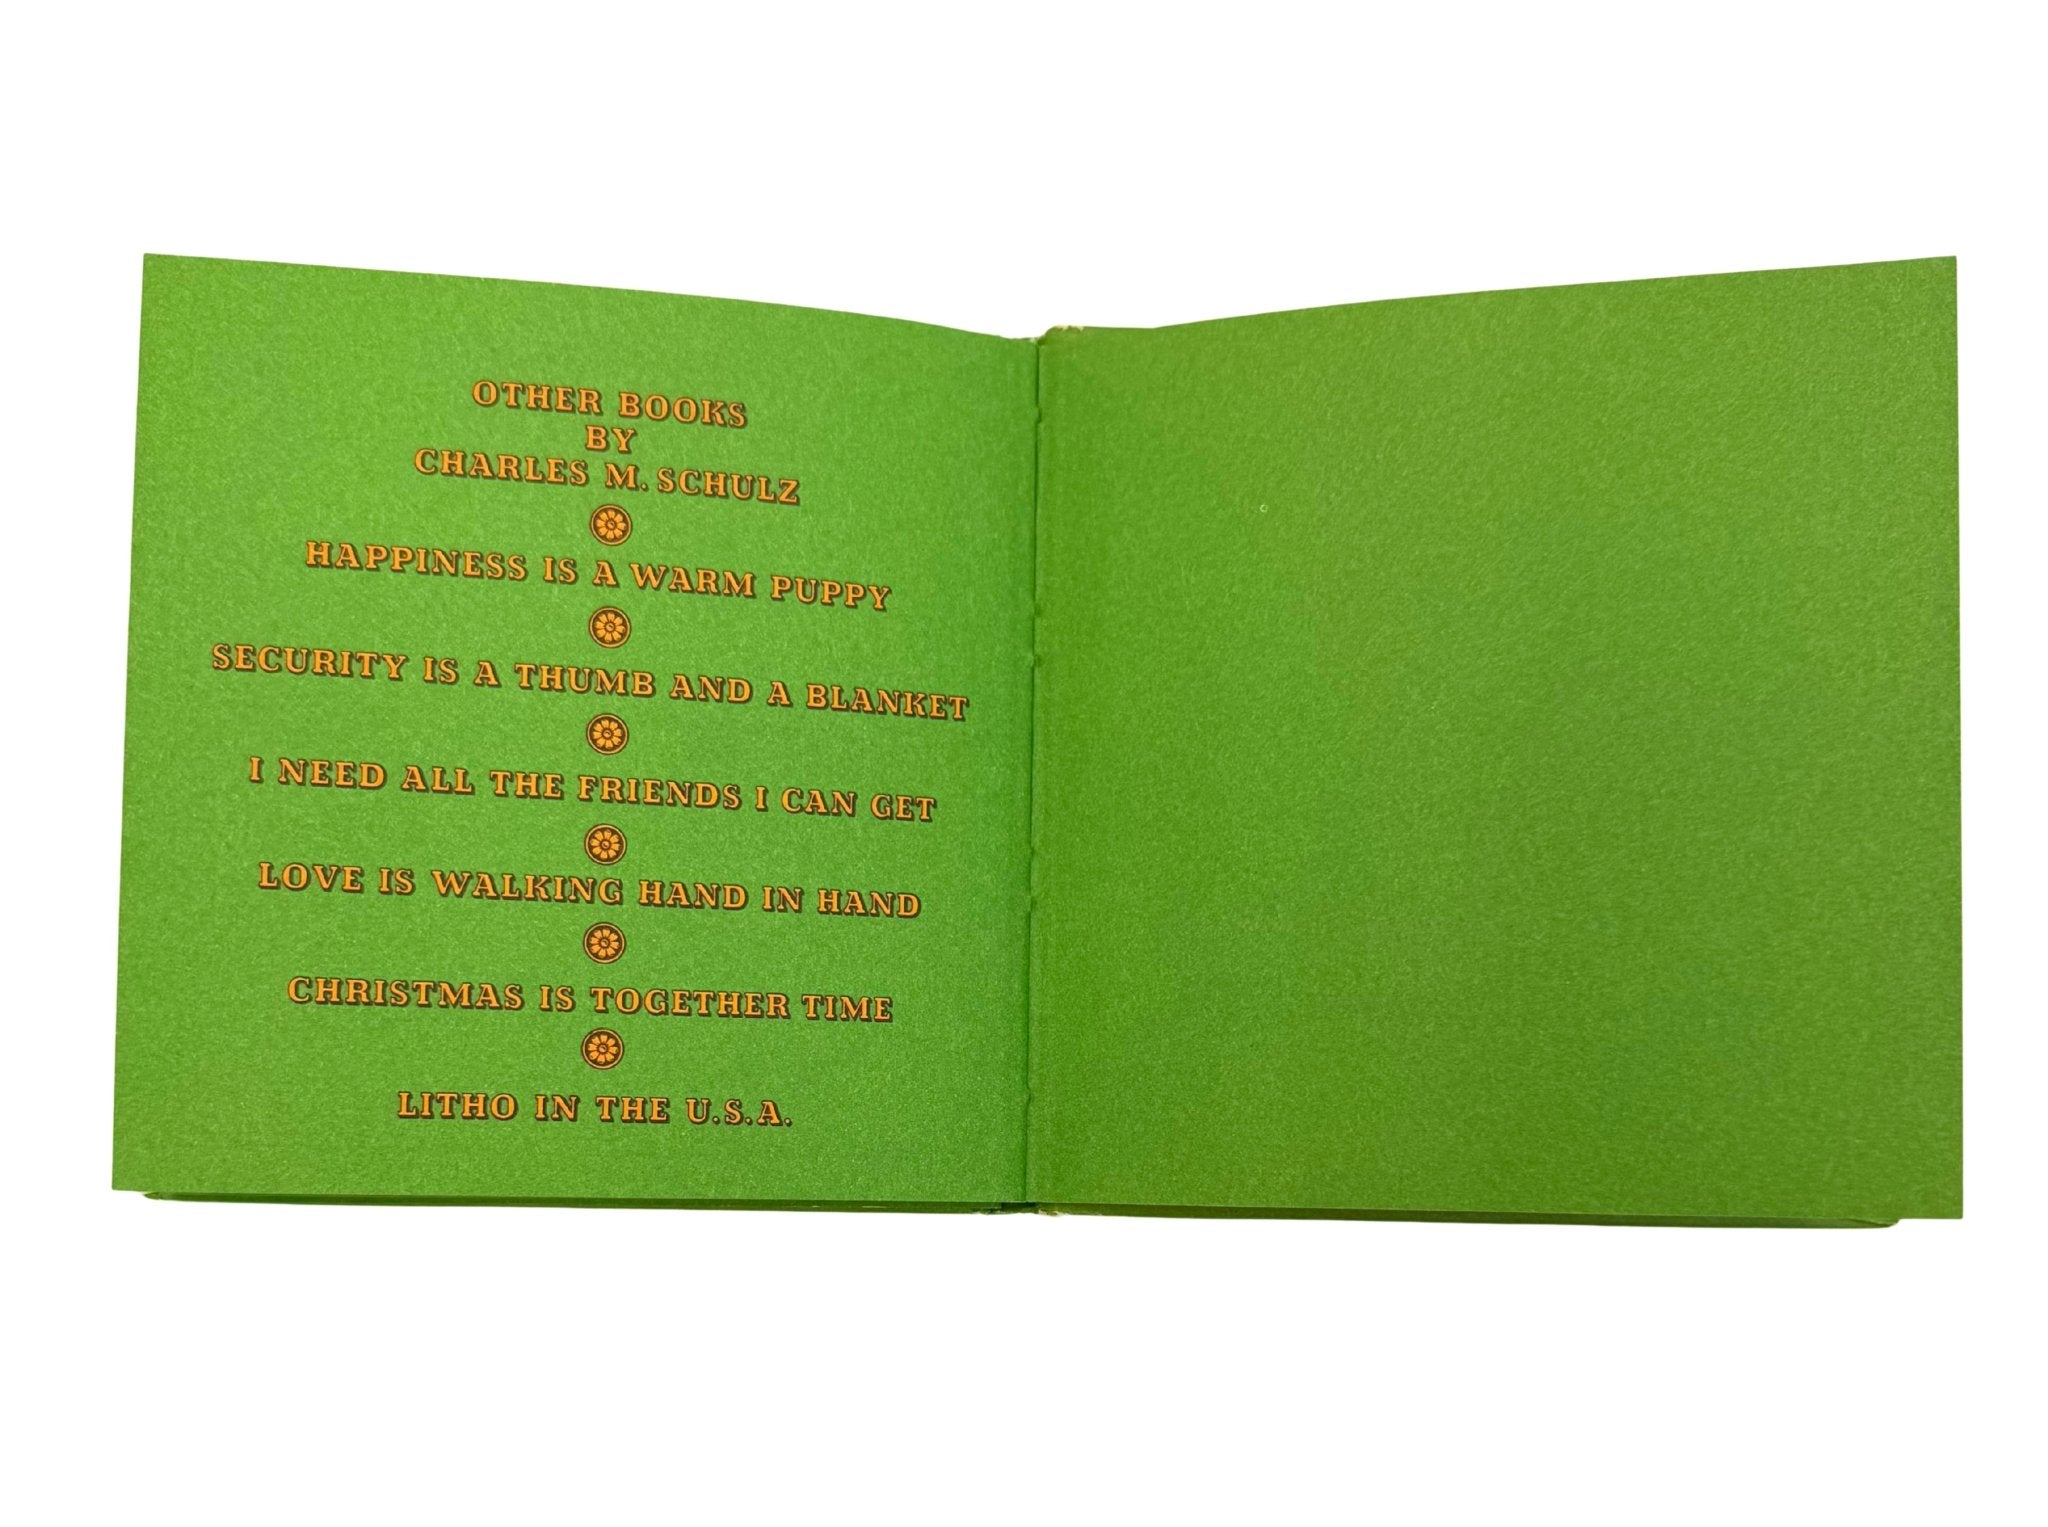 OTHER BOOKS
BY
CHARLES M. SCHULZ
HAPPINESS IS A WARM PUPPY
SECURITY IS A THUMB AND A BLANKET
I NEED ALL THE FRIENDS I CAN GET
LOVE IS WALKING HAND IN HAND
CHRISTMAS IS TOGETHER TIME
LITHO IN THE U.S.A.